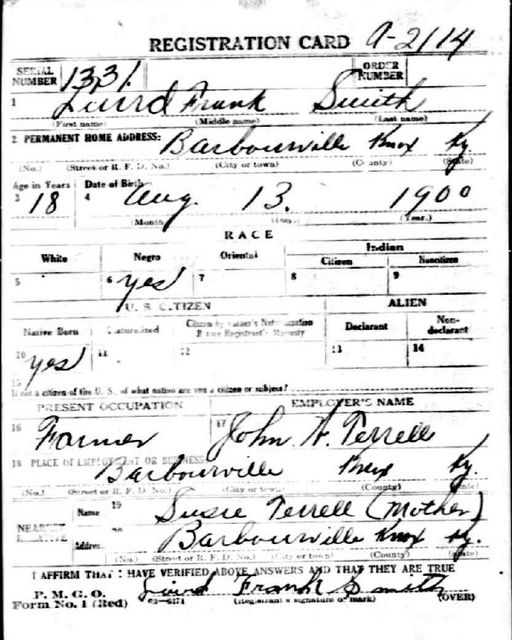 REGISTRATION CARD A-2114
SERIAL NUMBER 1331. ORDER NUMBER
1 Laird Frank Smith
(First name) (Middle name) (Last name)
2 PERMANENT HOME ADDRESS: Barbourville Knox Ky.
(No.) (Street or R. F. D. No.) (City or town) (County) (State)
Age in Years Date of Birth
3 18 4 Aug. 13. 1900
(Month) (Day) (Year.)
RACE
White Negro Oriental Indian
Citizen Noncitizen
5 6 yes 7 8 9
U. S. CITIZEN ALIEN
Native Born Naturalized Citizen by Father's Naturalization Before Registrant's Majority Declarant Non-declarant
10 yes 11 12 13 14
15
If not a citizen of the U. S., of what nation are you a citizen or subject?
PRESENT OCCUPATION EMPLOYER'S NAME
16 Farmer 17 John A. Terrell
18 PLACE OF EMPLOYMENT OR BUSINESS
Barbourville Knox Ky.
(No.) (Street or R. F. D. No.) (City or town) (County) (State)
NEAREST RELATIVE Name 19 Susie Terrell (Mother)
Address 20 Barbourville Knox Ky.
(No.) (Street or R. F. D. No.) (City or town) (County) (State)
I AFFIRM THAT I HAVE VERIFIED ABOVE ANSWERS AND THAT THEY ARE TRUE
P. M. G. O.
Form No. 1 (Red) 03-6171 Laird Frank Smith
(Registrant's signature or mark) (OVER)